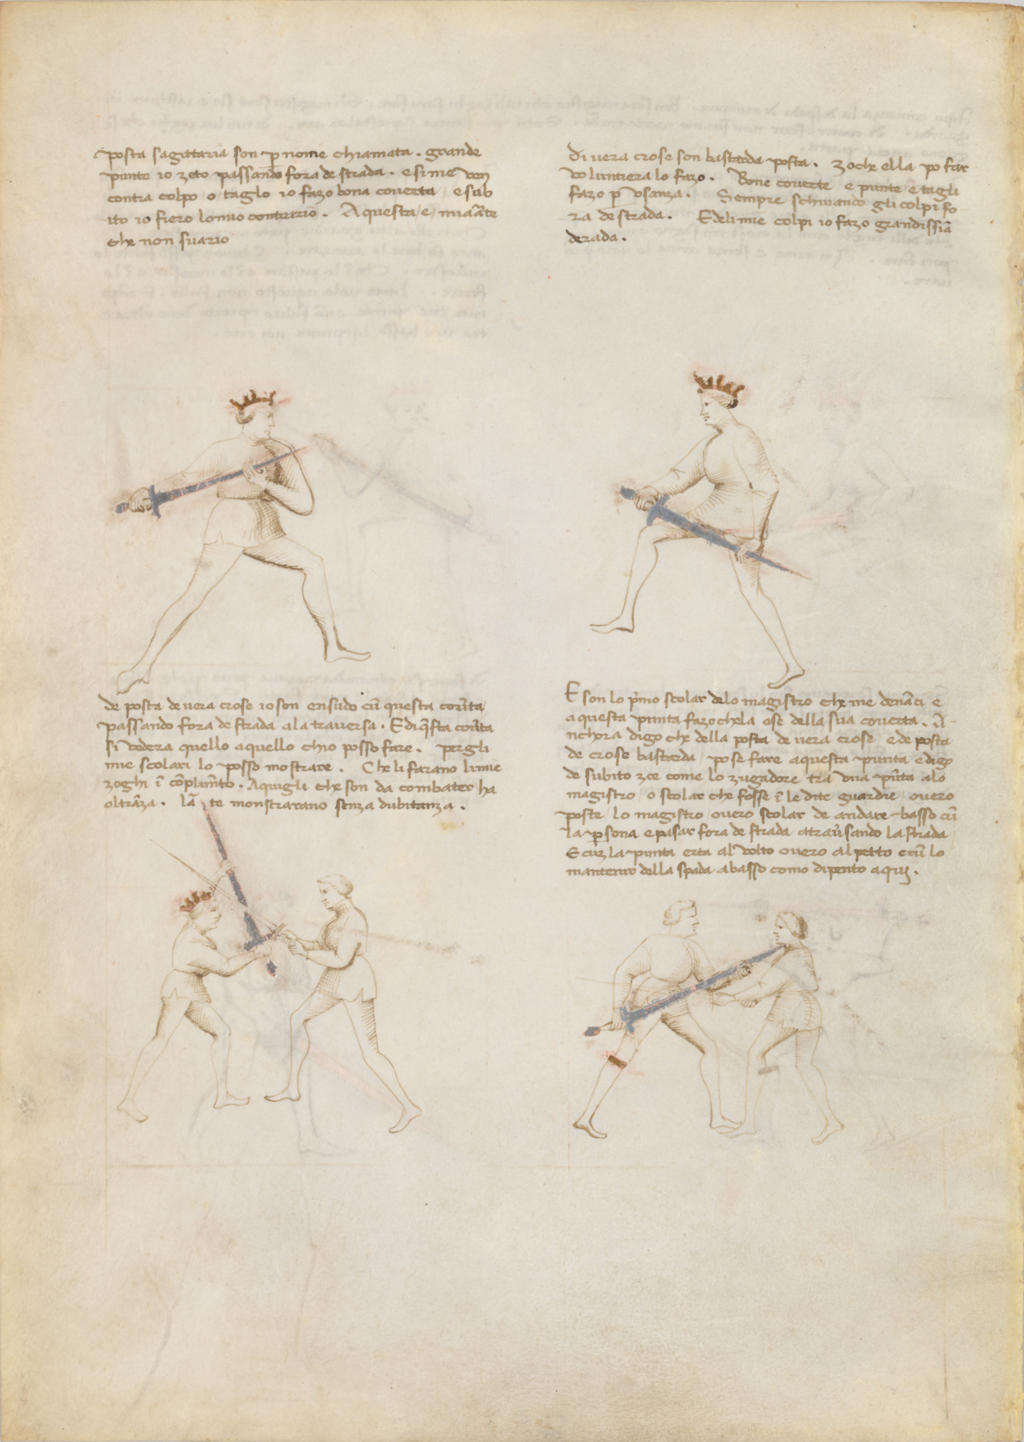 posta sagittaria son p nome chiamata . grande
punte io zeto passando fora de strada . e si me ven
contra colpo o taglo io fazo bona coverta e sub
ito io fiero lo mio contrario . Aquesta e mia ãte
che non svario
di vera crose son bastarda posta . zoche ella po far
voluntiera lo fazo . Bone coverte e punte e tagli
fazo p usanza . Sempre schivando gli colpi fo
ra de strada . E deli mie colpi io fazo grandissiã
derada .
de posta de vera crose io son ensudo cũ questa covta
passando fora de strada a la traversa . E di q̃sta covta
si vedera quello aquello chio posso fare . per gli
mie scolari lo posso mostrare . Che li farano li mie
zoghi ĩ cõplimto . Aquigli che son da combatter ha
oltrãza . lã te monstrarano senza dubitanza .
E son lo p̃mo scolar delo magistro che me denãci e
aquesta punta fazo chela ese della sua coverta . A
nchora digo che della posta de vera crose e de posta
de crose bastarda po se fare aquesta punta e digo
de subito zoe come lo zugadore tra una pũta alo
magistro o scolar che fosse ĩ le dite guardie overo
poste lo magistro overo scolar de andare basso cũ
la psona e passar fora de strada atravsando la strada
E cũ la punta erta al volto overo al petto e cũ lo
mantenir della spada abasso como depento aqui .